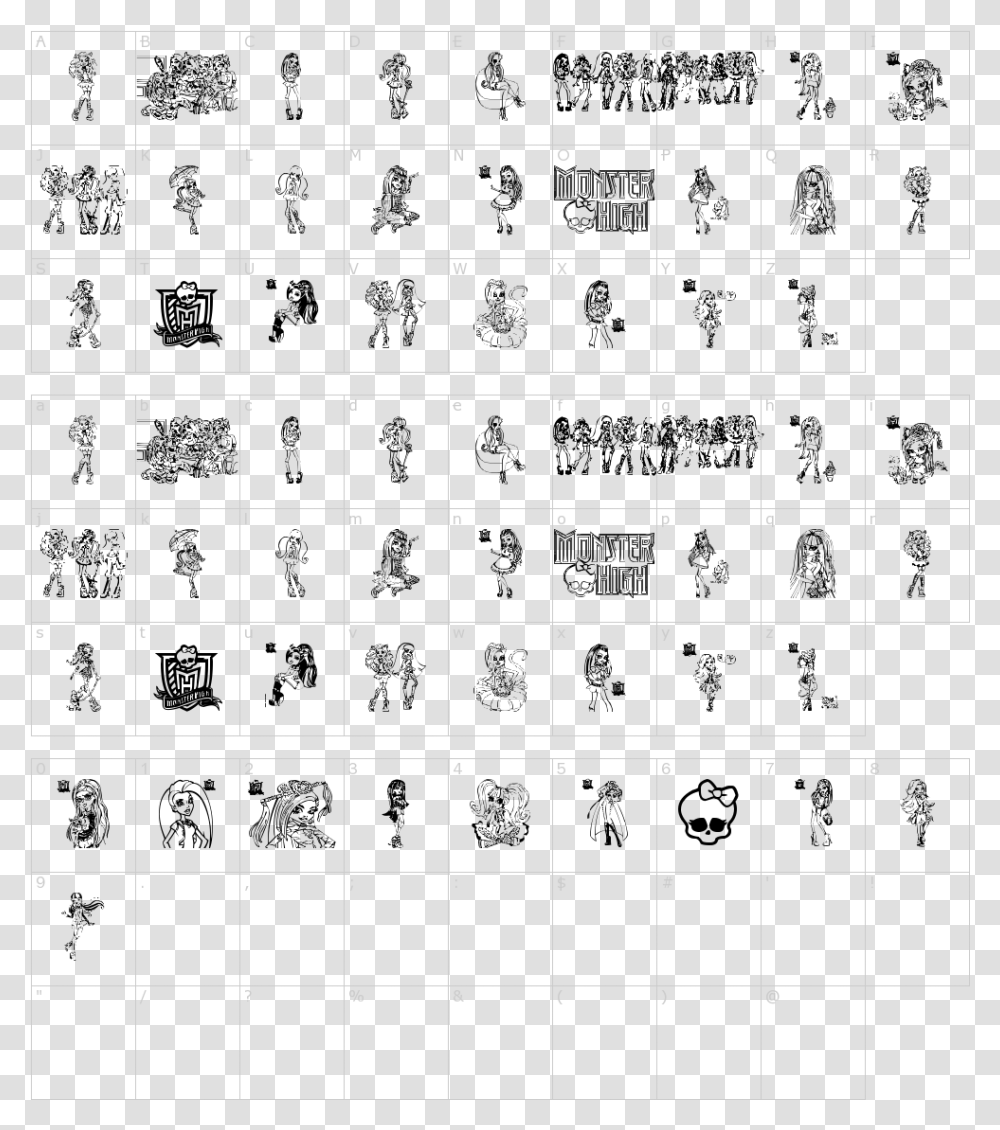 A B C D E F G H I
J K L M N O P Q R
MONSTER
HIGH
S T U V W X Y Z
MONSTER HIGH
a b c d e f g h i
j k l m n o p q r
MONSTER
HIGH
s t u v w x y z
MONSTER HIGH
0 1 2 3 4 5 6 7 8
9 . , ; : $ # ' !
" / ? % & ( ) @